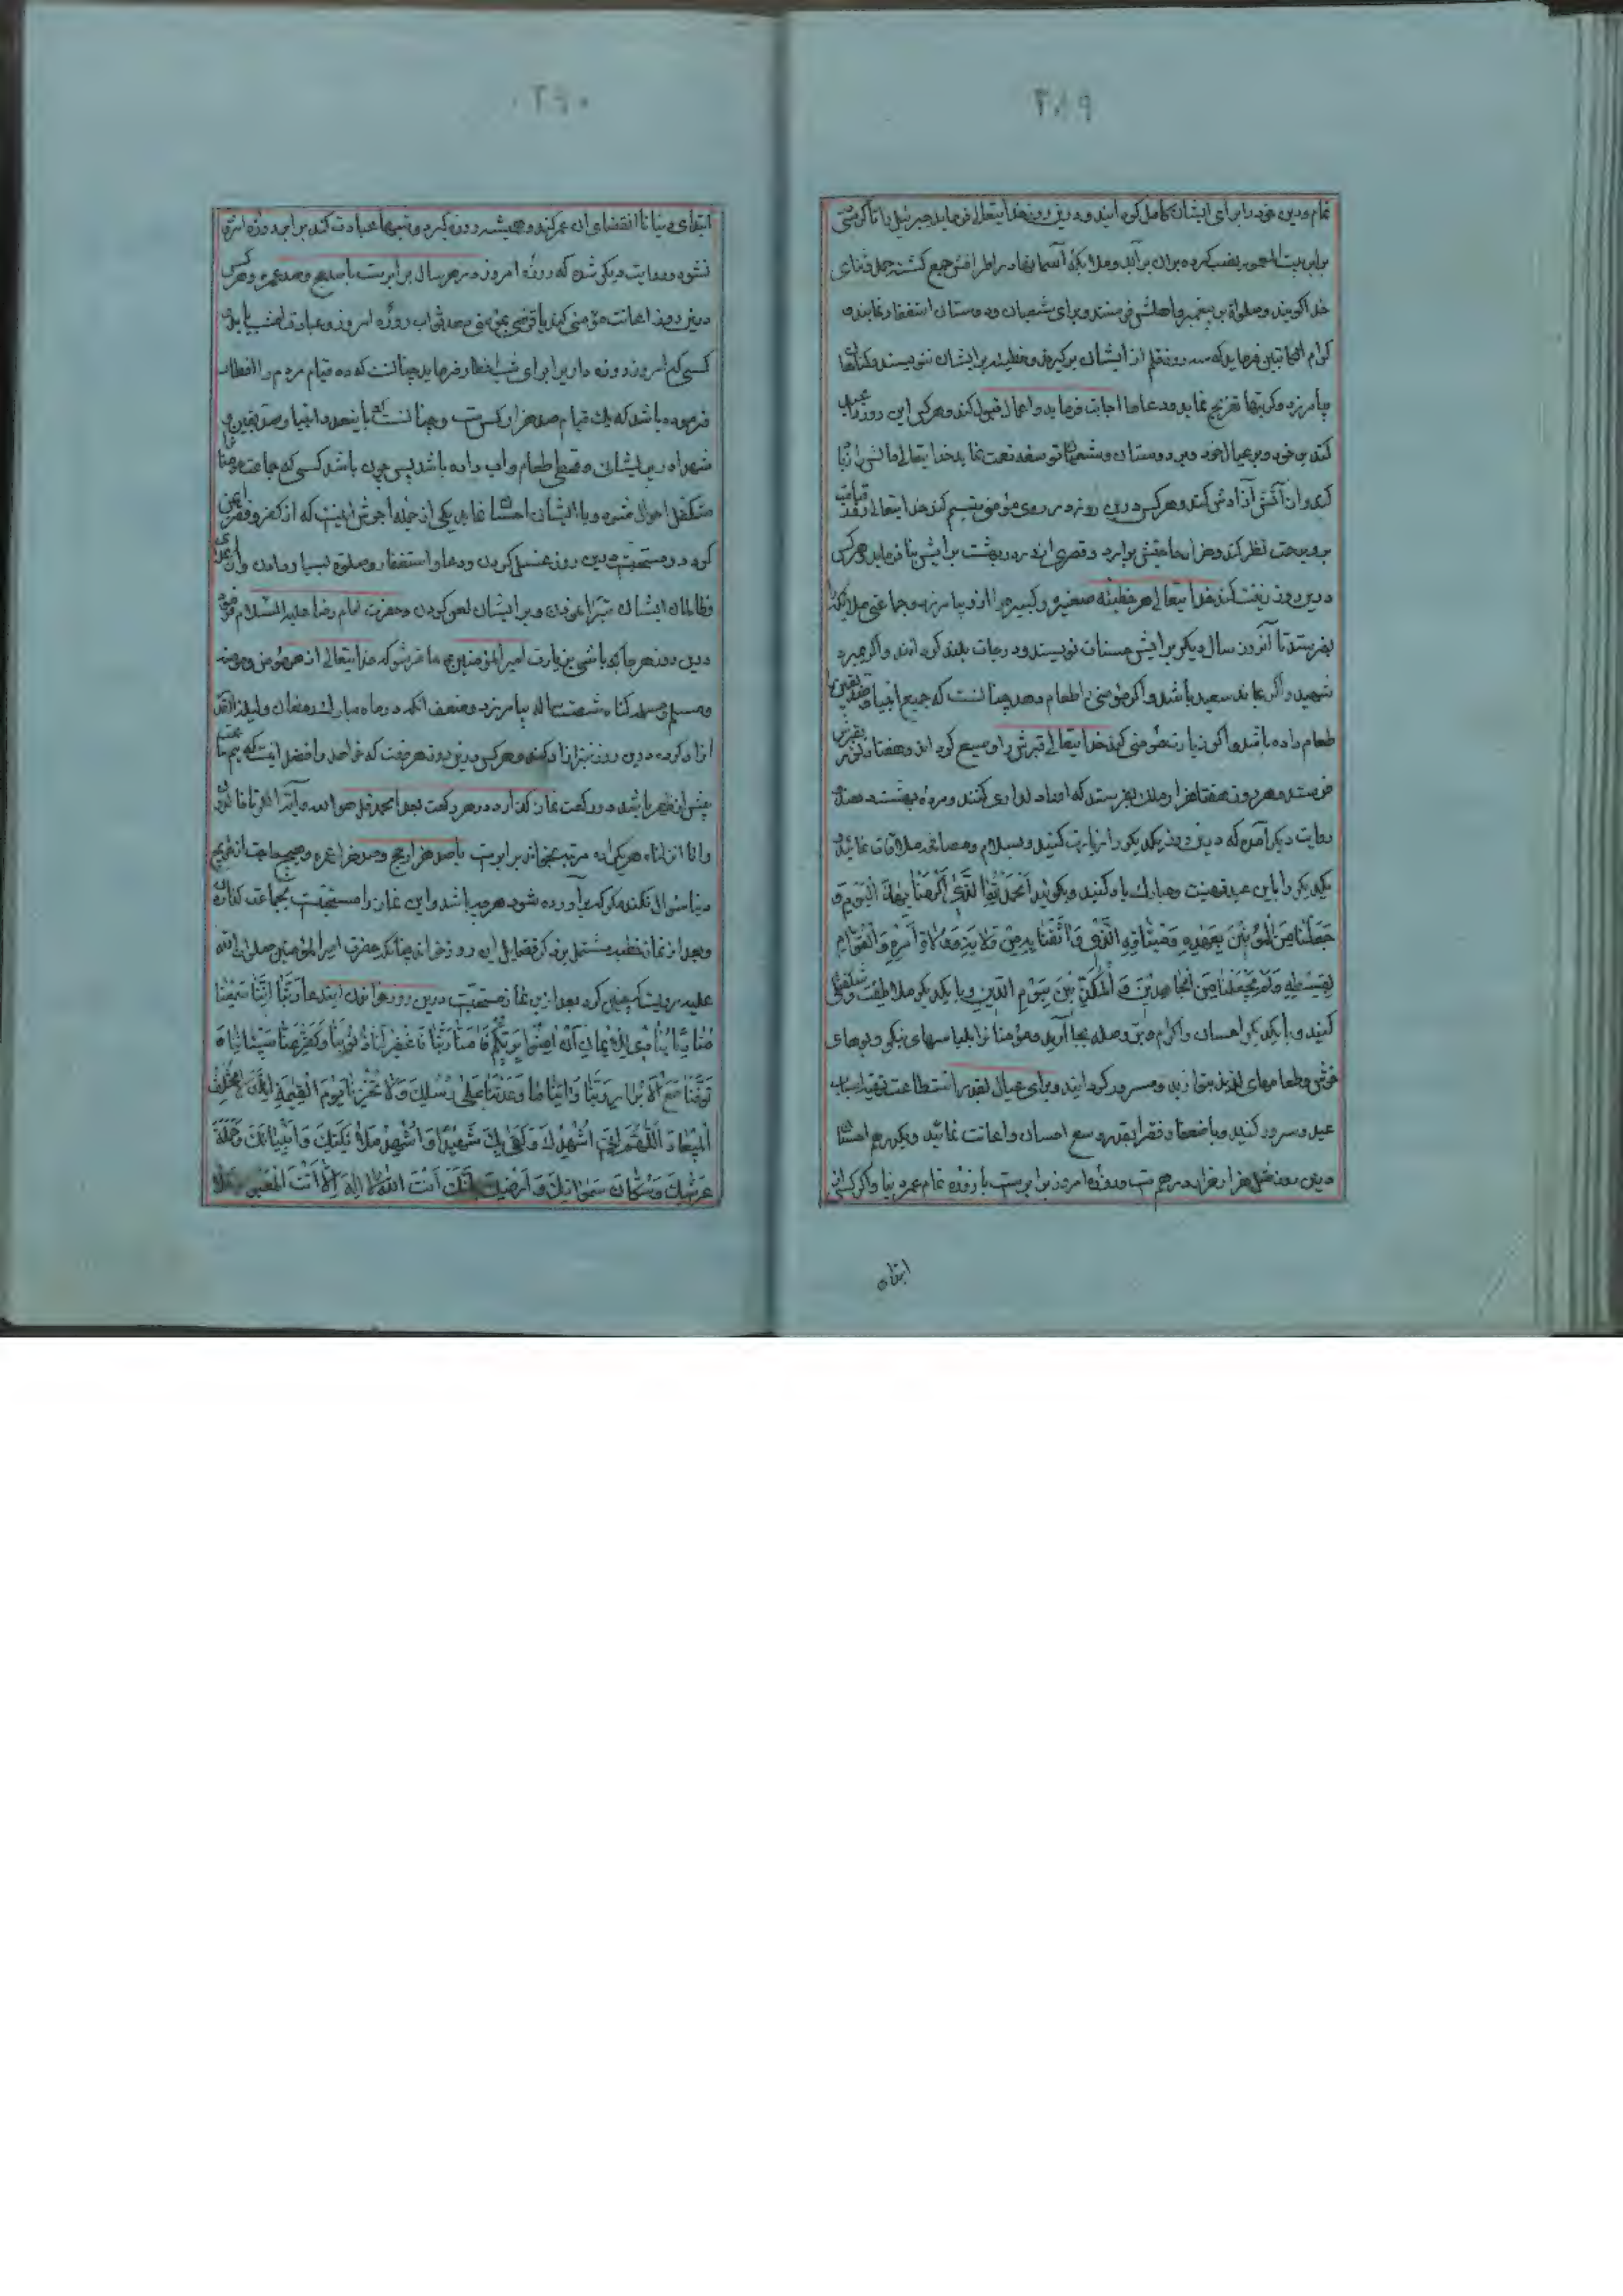 ۲۸۹
تمام و دین خود را برای ایشان کامل گردانیده و درین روز خدایتعالی فرماید جبرئیل را تا کرسی
برابر بیت المعمور نصب کرده بران برآید و ملایکهٔ آسمانها در اطرافش جمع گشته حمد و ثنای
خدا گویند و صلوات بر پیغمبر و اهلش فرستند و برای شیعیان و دوستان استغفار نمایند و
کرام الکاتبین فرماید که سه روز قلم از ایشان برگیرند و خطیئه بر ایشان ننویسند و گناهان
بیامرزد و کربتها تفریج نماید و دعاها اجابت فرماید و اعمال قبول کند و هرکس این روز را عید
کند بر خود و بر عیال خود و بر دوستان و شیعیان توسعه نعمت نماید خدایتعالی مالش را زیاد
کرده از آتش آزادش کند و هرکس درین روز در روی مؤمنی تبسم کند خدایتعالی روز قیامت
برو برحمت نظر کند و هزار حاجتش برآرد و قصری از در بهشت برایش بنا فرماید و هرکس
درین روز زینت کند خدایتعالی هر خطیئه صغیره و کبیره را ازو بیامرزد و جماعتی ملایکه
بفرستد تا آنروز سال دیگر برایش حسنات نویسند و درجات بلند گردانند و اگر بمیرد
شهید و اگر بماند سعید باشد و اگر مؤمنی را طعام دهد چنانست که جمیع انبیا و صدیقین را
طعام داده باشد و اگر زیارت مؤمنی کند خدایتعالی قبرش را وسیع گرداند و هفتاد نور بقبرش
فرستد و هر روز هفتاد هزار ملک بفرستد که او را دلداری کنند و مژده بهشت دهند
روایت دیگر آمده که درین روز یکدیگر را زیارت کنید و بسلام و مصافحه ملاقات نمائید و
یکدیگر را باین عید تهنیت و مبارک باد کنید و بگوئید اَلْحَمْدُ لِلّهِ الَّذی اَکْرَمَنا بِهذَا الْیَوْمِ وَ
جَعَلَنا مِنَ الْمُؤْمِنینَ بِعَهْدِهِ وَمیثاقِهِ الَّذی واثَقَنا بِهِ مِنْ وِلایَةِ وُلاةِ اَمْرِهِ وَالْقُوّامِ
بِقِسْطِهِ وَلَمْ یَجْعَلْنا مِنَ الْجاحِدینَ وَالْمُکَذِّبینَ بِیَوْمِ الدّینِ و با یکدیگر ملاطفت و شفقت
کنید و با یکدیگر احسان و اکرام و بر و صله بجا آرید و مؤمنان را بلباسهای نیکو و بوهای
خوش و طعامهای لذیذ بنوازید و مسرور گردانید و برای عیال بقدر استطاعت تهیه اسباب
عید و سرور کنید و با ضعفا و فقرا بقدر وسع احسان و اعانت نمائید و یکدرهم احسان
درین روز مثل هزار هزار درهم است و روزه امروز برابرست با روزه تمام عمر دنیا و اگر کسی از
ابتدای
۲۹۰
ابتدای دنیا تا انقضای آن عمر کند و همیشه روزه گیرد و شبها عبادت کند برابر روزه امروز
نشود و روایت دیگر شده که روزه امروز در هر سال برابرست با صد حج و صد عمره و هرکس
درین روز اعانت مؤمنی کند یا قرضی بمؤمنی دهد ثواب روزه امروز و عبادت امشب یابد و
کسی که امروز روزه دارد برای شب افطار فرماید چنانست که ده فیام مردم را افطار
فرموده باشد که یک فیام صد هزار کس است و چنانست که باینعدد انبیا و صدیقین و
شهدا در پریشانی و قحطی طعام و آب داده باشد پس چون باشد کسی که جماعت مؤمنان را
متکفل احوال شده و با ایشان احسان نماید یکی از جمله اجرش اینست که از کفر و فقر ایمن
گردد و مستحبست درین روز غسل کردن و دعا و استغفار و صلوة بسیار دادن و از اعدای
و ظالمان ایشان تبرا نمودن و بر ایشان لعن کردن و حضرت امام رضا علیه السلام فرمود
درین روز هر جا که باشی بزیارت امیر المؤمنین ع حاضر شو که خدایتعالی از هر مؤمن و مؤمنه
و مسلم و مسلمه گناه شصت ساله بیامرزد و ضعف آنکه در ماه مبارک رمضان و لیلة القدر
آزاد کرده درین روز نیز آزاد کند و هرکس درین روز هر وقت که خواهد و افضل آنست که نیم ساعت
پیش از ظهر باشد دو رکعت نماز گذارد در هر رکعت بعد از حمد قل هو الله و آیة الکرسی تا خالدون
و انا انزلناه هریکی ده مرتبه بخواند برابرست با صد هزار حج و صد هزار عمره و هیچ حاجت از حوایج
دنیا سؤال نکند مگر که برآورده شود هرچه باشد و این نماز را مستحبست بجماعت گذاردن
و بعد از نماز خطبه مشتمل بر ذکر فضایل این روز خواند چنانکه حضرت امیر المؤمنین صلوات الله
علیه روایت کرده بعد ازین نماز مستحبست درین روز خواندن ایندعا رَبَّنا اِنَّنا سَمِعْنا
مُنادِیًا یُنادی لِلْایمانِ اَنْ امِنُوا بِرَبِّکُمْ فَامَنّا رَبَّنا فَاغْفِرْ لَنا ذُنُوبَنا وَکَفِّرْ عَنّا سَیِّئاتِنا وَ
تَوَفَّنا مَعَ الْاَبْرارِ رَبَّنا وَاتِنا ما وَعَدْتَنا عَلی رُسُلِکَ وَلا تُخْزِنا یَوْمَ الْقِیمَةِ اِنَّکَ لا تُخْلِفُ
الْمیعادَ اَللّهُمَّ اِنّی اُشْهِدُکَ وَکَفی بِکَ شَهیدًا وَاُشْهِدُ مَلائِکَتَکَ وَاَنْبِیائَکَ وَحَمَلَةَ
عَرْشِکَ وَسُکّانَ سَمواتِکَ وَاَرْضِکَ بِاَنَّکَ اَنْتَ اللهُ لا اِلهَ اِلّا اَنْتَ الْمَعْبُودُ فَلا